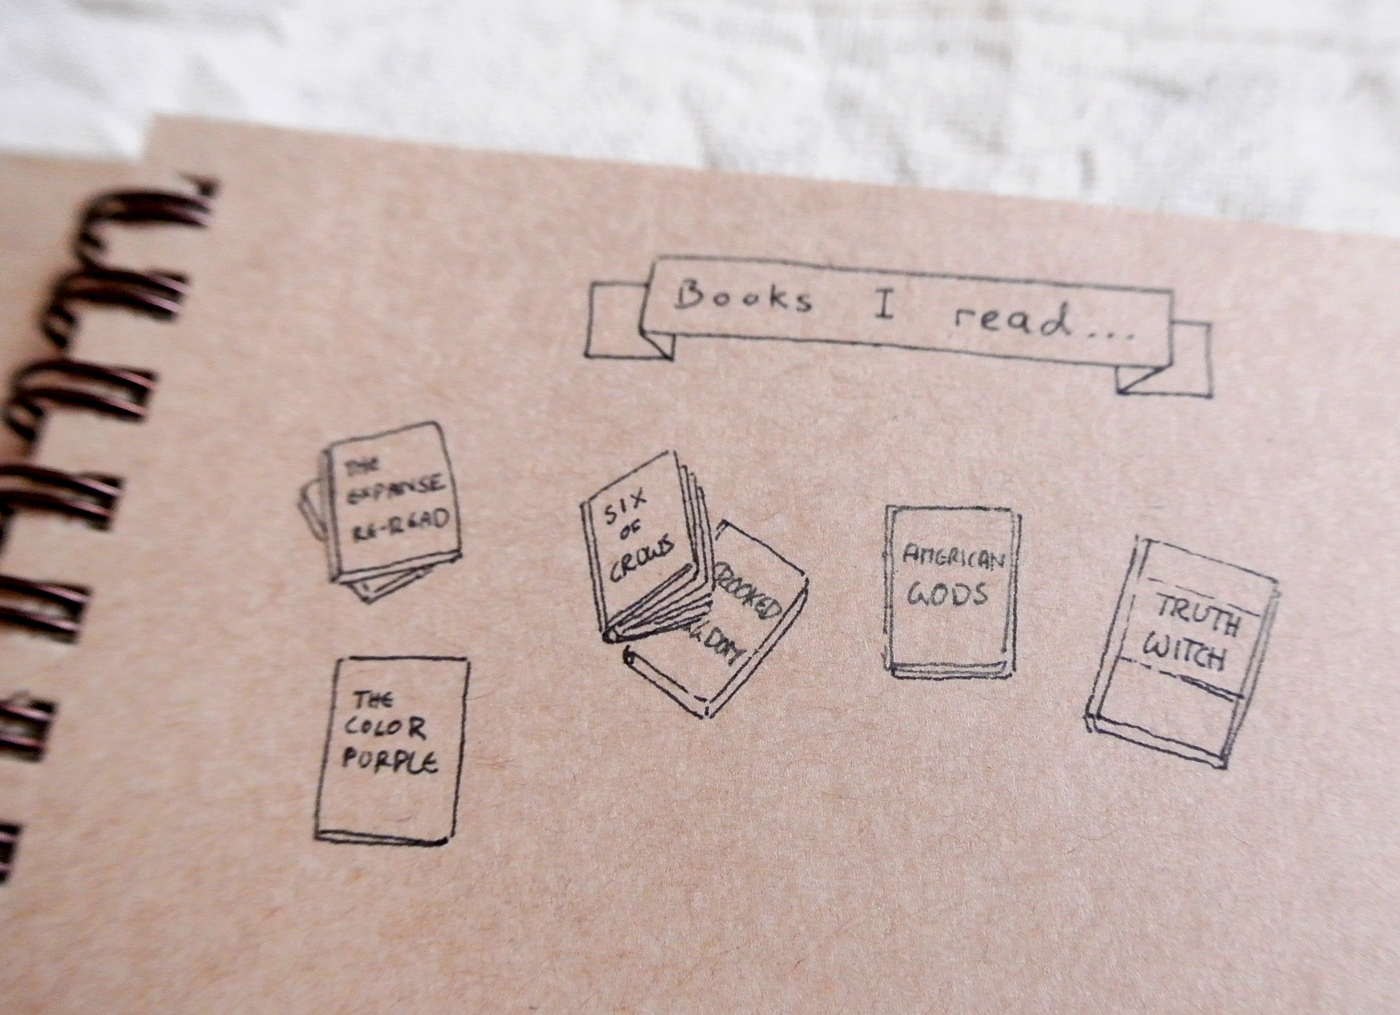 Books I read...
THE
EXPANSE
RE-READ
SIX
OF
CROWS
CROOKED
AMERICAN
GODS
TRUTH
WITCH
THE
COLOR
PURPLE